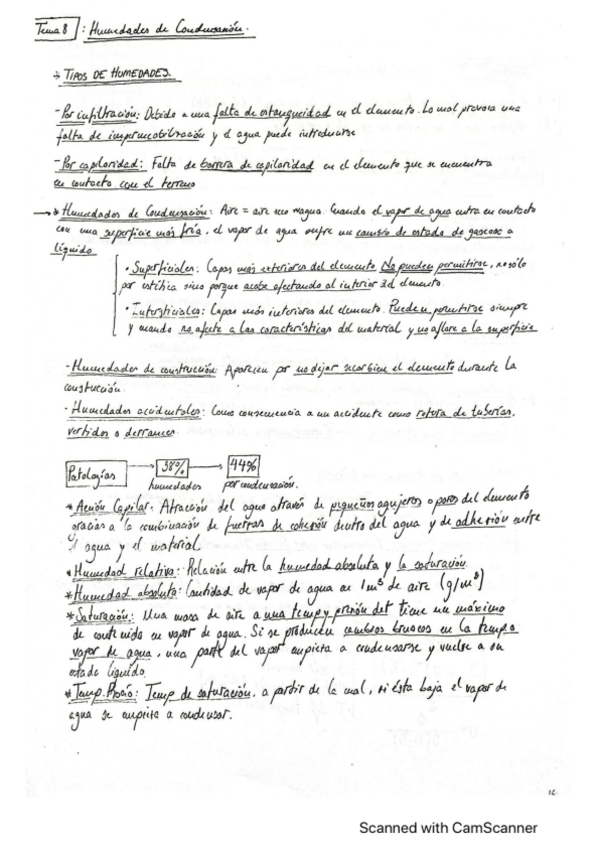 Tema 8 : Humedades de Condensación.
→ TIPOS DE HUMEDADES.
- Por infiltración: Debido a una falta de estanqueidad en el elemento. Lo cual provoca una
falta de impermeabilización y el agua puede introducirse
- Por capilaridad: Falta de barrera de capilaridad en el elemento que se encuentra
en contacto con el terreno
→ Humedades de Condensación: Aire = aire seco + agua. Cuando el vapor de agua entra en contacto
con una superficie más fría, el vapor de agua sufre un cambio de estado de gaseoso a
líquido
• Superficiales: Capas más exteriores del elemento No pueden permitirse, no sólo
por estética sino porque acaba afectando al interior del elemento.
• Intersticiales: Capas más interiores del elemento. Pueden permitirse siempre
y cuando no afecte a las características del material y no aflore a la superficie
- Humedades de construcción: Aparecen por no dejar secar bien el elemento durante la
construcción.
- Humedades accidentales: Como consecuencia a un accidente como rotura de tuberías,
vertidos o derrames.
Patologías → 38% → 44%
humedades por condensación.
* Acción Capilar: Atracción del agua através de pequeños agujeros o poros del elemento
gracias a la combinación de fuerzas de cohesión dentro del agua y de adhesión entre
el agua y el material
* Humedad relativa: Relación entre la humedad absoluta y la saturación.
* Humedad absoluta: Cantidad de vapor de agua en 1m³ de aire (g/m³)
* Saturación: Una masa de aire a una temp y presión det tiene un máximo
de contenido en vapor de agua. Si se producen cambios bruscos en la temp o
vapor de agua, una parte del vapor empieza a condensarse y vuelve a su
estado líquido.
* Temp. Rocío: Temp de saturación, a partir de la cual, si ésta baja el vapor de
agua se empieza a condensar.
Scanned with CamScanner